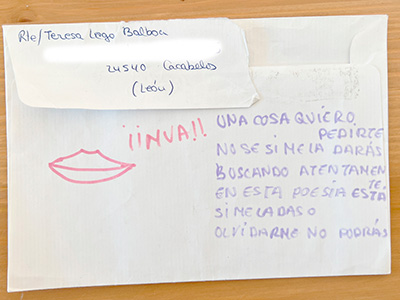 Rte/Teresa Lego Balboa
24540 Cacabelos
(León)
¡¡INVA!!
UNA COSA QUIERO
PEDIRTE
NO SE SI ME LA DARÁS
BUSCANDO ATENTAMEN
TE,
EN ESTA POESIA ESTÁ
SI ME LA DAS O
OLVIDARME NO PODRÁS